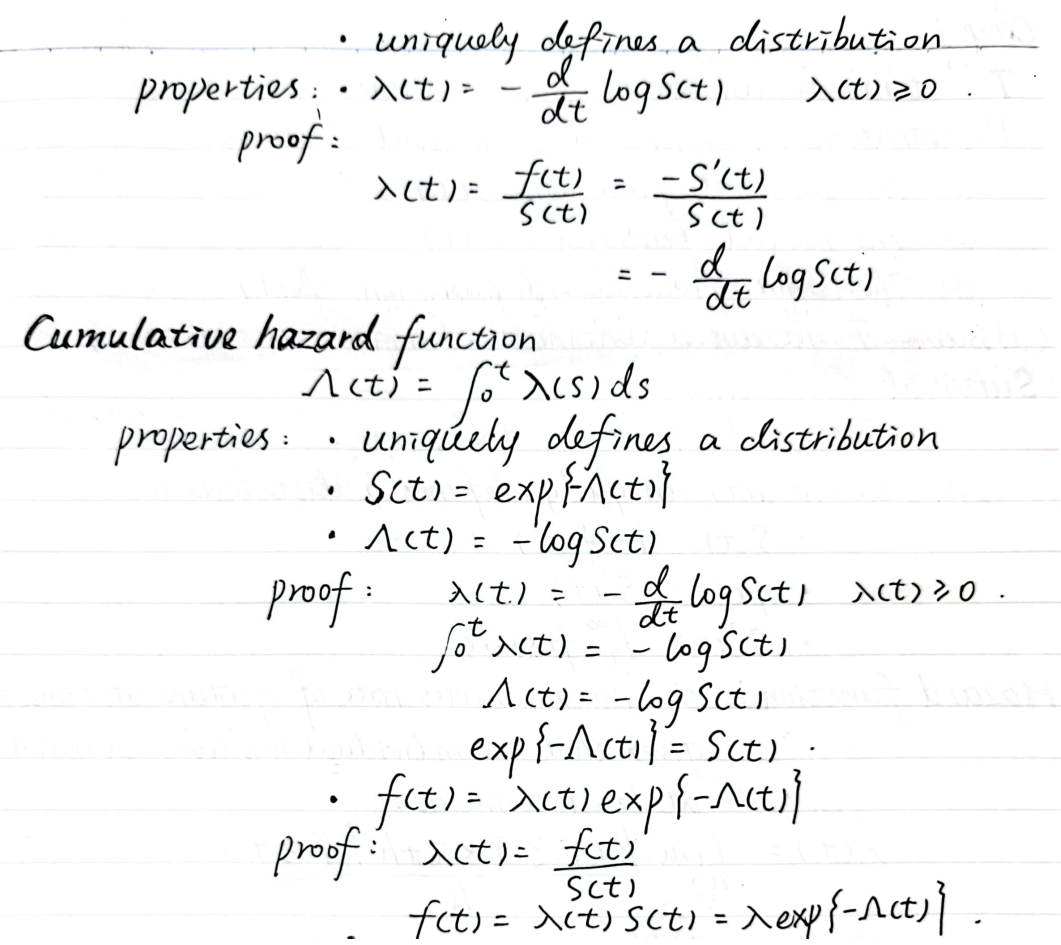 • uniquely defines a distribution
properties: • λ(t) = - d/dt log S(t)    λ(t) ≥ 0 .
proof:
λ(t) = f(t)/S(t) = -S'(t)/S(t)
= - d/dt log S(t)
Cumulative hazard function
Λ(t) = ∫₀ᵗ λ(s) ds
properties: • uniquely defines a distribution
• S(t) = exp{-Λ(t)}
• Λ(t) = -log S(t)
proof: λ(t) = - d/dt log S(t)  λ(t) ≥ 0 .
∫₀ᵗ λ(t) = - log S(t)
Λ(t) = -log S(t)
exp{-Λ(t)} = S(t) .
• f(t) = λ(t) exp{-Λ(t)}
proof: λ(t) = f(t)/S(t)
f(t) = λ(t) S(t) = λ exp{-Λ(t)} .